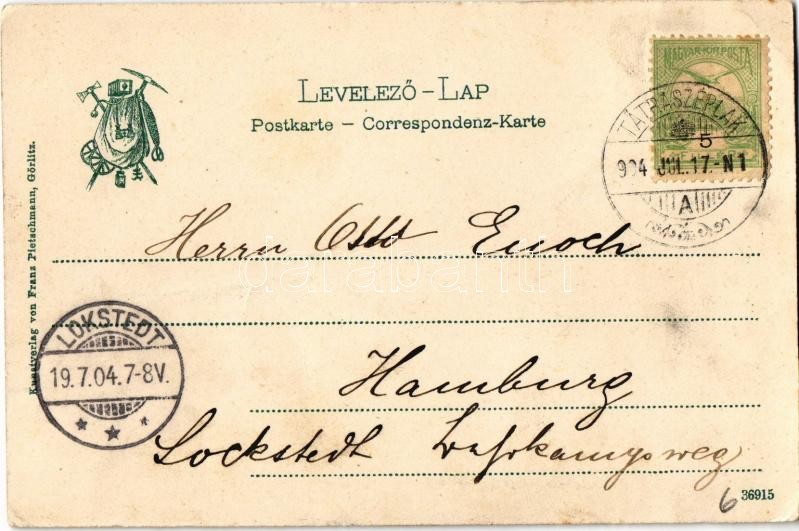 LEVELEZŐ – LAP
Postkarte – Correspondenz-Karte
MAGYAR KIR. POSTA
5
TÁTRASZÉPLAK
904 JUL. 17. – N1
A
Herrn Otto Enoch
darabanth
LOKSTEDT
19.7.04.7-8V.
Hamburg
Lockstedt
Kunstverlag von Franz Pietschmann, Görlitz.
6
36915